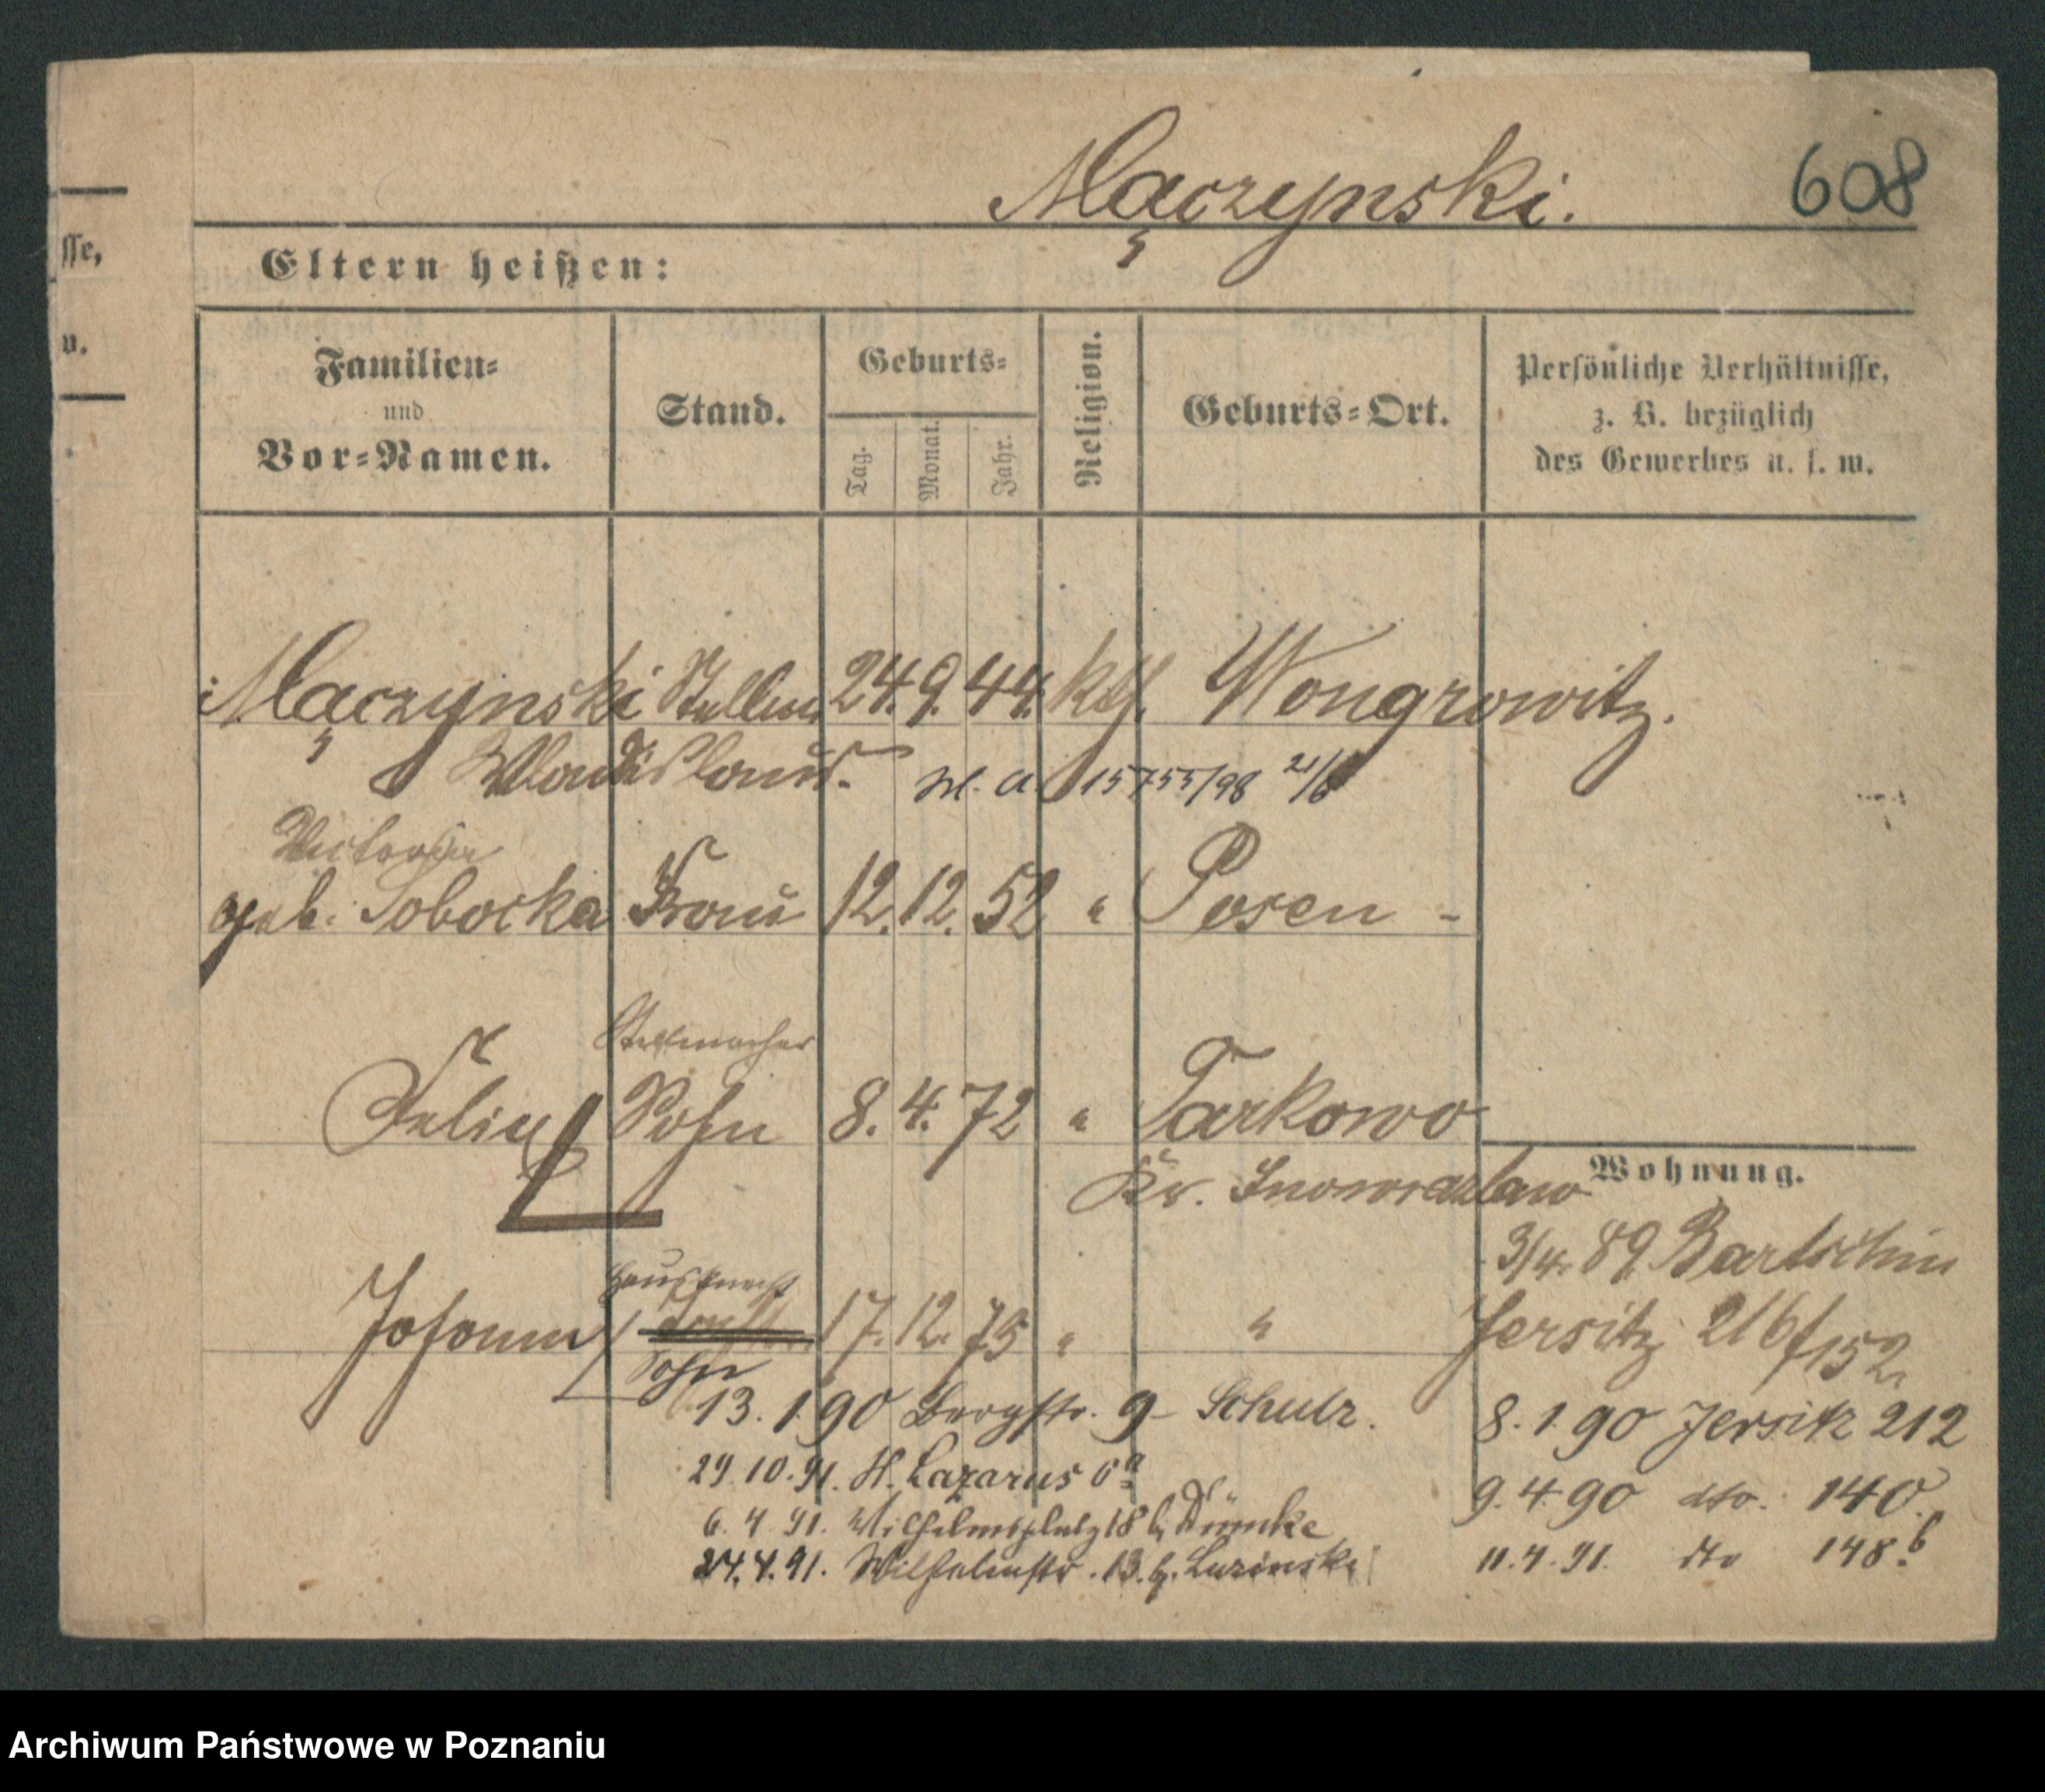 Mączynski.
608
sse,
n.
Eltern heißen:
Familien-
und
Vor-Namen.
Stand.
Geburts-
Tag.
Monat.
Jahr.
Religion.
Geburts-Ort.
Persönliche Verhältnisse,
z. B. bezüglich
des Gewerbes u. s. w.
Mączynski 24. 9. 44. kth. Wongrowitz.
Wladislaus.
15755/98 21/6
Victoria
geb. Sobocka Frau 12. 12. 52 " Posen -
Stellmacher
Felix Sohn 8. 4. 72 " Tarkowo
Kr. Inowrazlaw
Wohnung.
3/4. 89 Bartschin
Hausknecht
Johann 17. 12. 75 " "
Sohn
Jersitz 216/152
13. 1. 90 Bergstr. 9 Schulz.
8. 1. 90 Jersitz 212
29. 10. 91. St. Lazarus 6a
9. 4. 90 dto. 140.
6. 4. 91. Wilhelmsplatz 18 b. Dümke
11. 4. 91. dto 148b
24. 4. 91. Wilhelmstr. 13. b. Luzinski
Archiwum Państwowe w Poznaniu